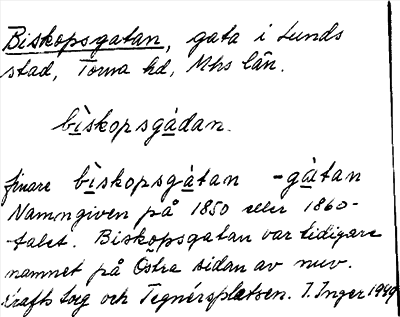 Biskopsgatan, gata i Lunds
stad, Torna hd, Mhs län.
bìskopsgàdan.
finare bìskopsgàtan -gàtan
Namngiven på 1850 eller 1860-
talet. Biskopsgatan var tidigare
namnet på Östra sidan av nuv.
Krafts torg och Tegnérsplatsen. I. Inger 1949